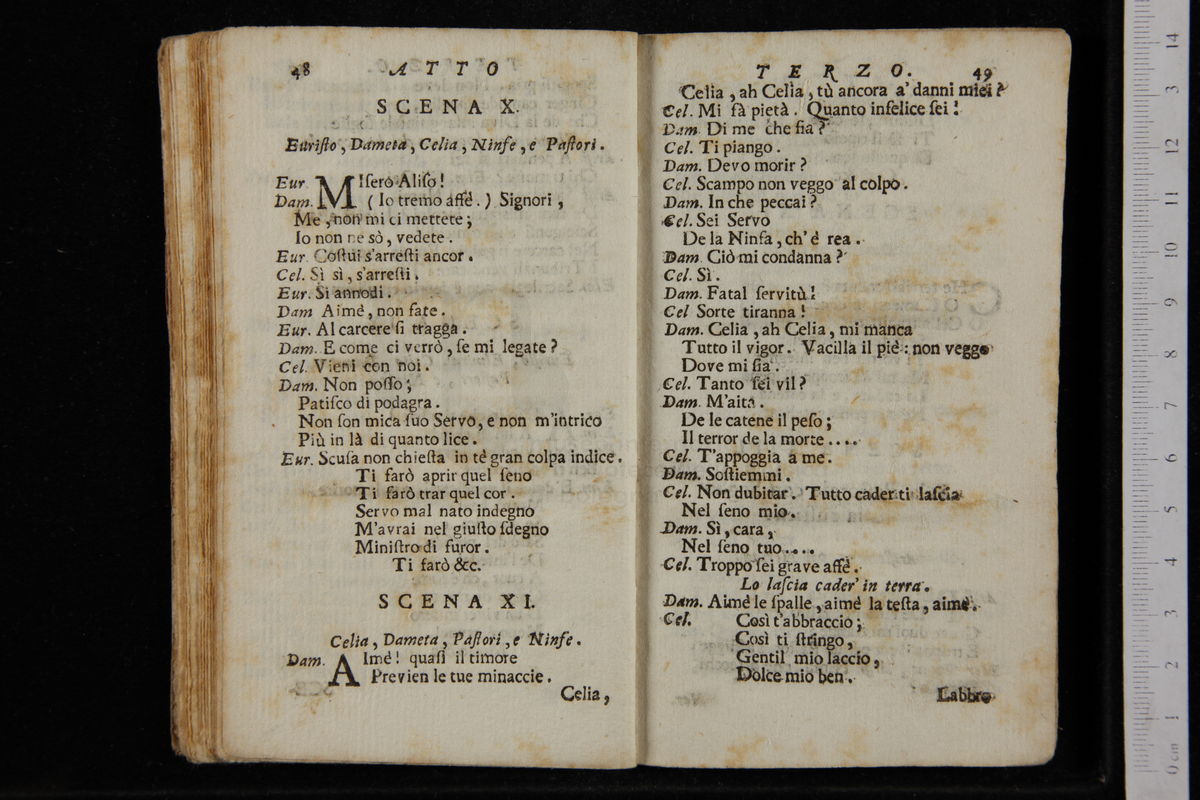 48 ATTO
SCENA X.
Euristo, Dameta, Celia, Ninfe, e Pastori.
Eur. MIſerò Aliſo!
Dam. (Io tremo affè.) Signori,
Me, non mi ci mettete;
Io non ne sò, vedete.
Eur. Coſtui s'arreſti ancor.
Cel. Sì sì, s'arreſti.
Eur. Si annodi.
Dam Aimè, non fate.
Eur. Al carcere ſi tragga.
Dam. E come ci verrò, ſe mi legate?
Cel. Vieni con noi.
Dam. Non poſſo;
Patiſco di podagra.
Non ſon mica ſuo Servo, e non m'intrico
Più in là di quanto lice.
Eur. Scuſa non chieſta in tè gran colpa indice.
Ti farò aprir quel ſeno
Ti farò trar quel cor.
Servo mal nato indegno
M'avrai nel giuſto ſdegno
Miniſtro di furor.
Ti farò &c.
SCENA XI.
Celia, Dameta, Paſtori, e Ninfe.
Dam. AImè! quaſi il timore
Previen le tue minaccie.
Celia,
TERZO. 49
Celia, ah Celia, tù ancora a' danni miei?
Cel. Mi fà pietà. Quanto infelice ſei!
Dam. Di me che ſia?
Cel. Ti piango.
Dam. Devo morir?
Cel. Scampo non veggo al colpo.
Dam. In che peccai?
Cel. Sei Servo
De la Ninfa, ch' è rea.
Dam. Ciò mi condanna?
Cel. Sì.
Dam. Fatal ſervitù!
Cel Sorte tiranna!
Dam. Celia, ah Celia, mi manca
Tutto il vigor. Vacilla il piè: non veggo
Dove mi ſia.
Cel. Tanto ſei vil?
Dam. M'aita.
De le catene il peſo;
Il terror de la morte....
Cel. T'appoggia a me.
Dam. Soſtiemmi.
Cel. Non dubitar. Tutto cader ti laſcia
Nel ſeno mio.
Dam. Sì, cara,
Nel ſeno tuo....
Cel. Troppo ſei grave affè.
Lo laſcia cader' in terra.
Dam. Aimè le ſpalle, aimè la teſta, aimè.
Cel. Così t'abbraccio;
Così ti ſtringo,
Gentil mio laccio,
Dolce mio ben.
Labbro